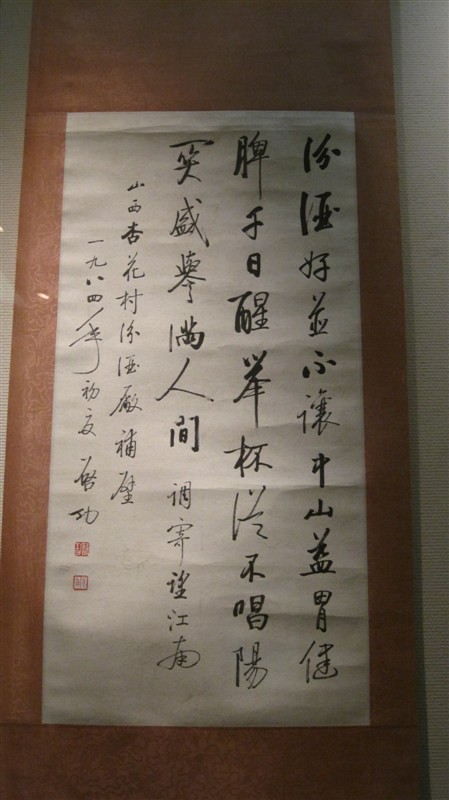 汾酒好並不讓中山益胃健
脾千日醒举杯從不唱陽
関盛譽满人間 調寄望江南
山西杏花村汾酒廠補壁
一九八四年初夏 啓功